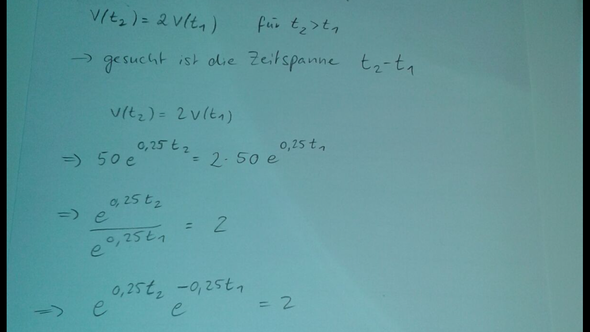 V(t₂) = 2 V(t₁) für t₂ > t₁
→ gesucht ist die Zeitspanne t₂ - t₁
V(t₂) = 2 V(t₁)
⇒ 50 e^{0,25 t₂} = 2 · 50 e^{0,25 t₁}
⇒ e^{0,25 t₂} / e^{0,25 t₁} = 2
⇒ e^{0,25 t₂} e^{-0,25 t₁} = 2